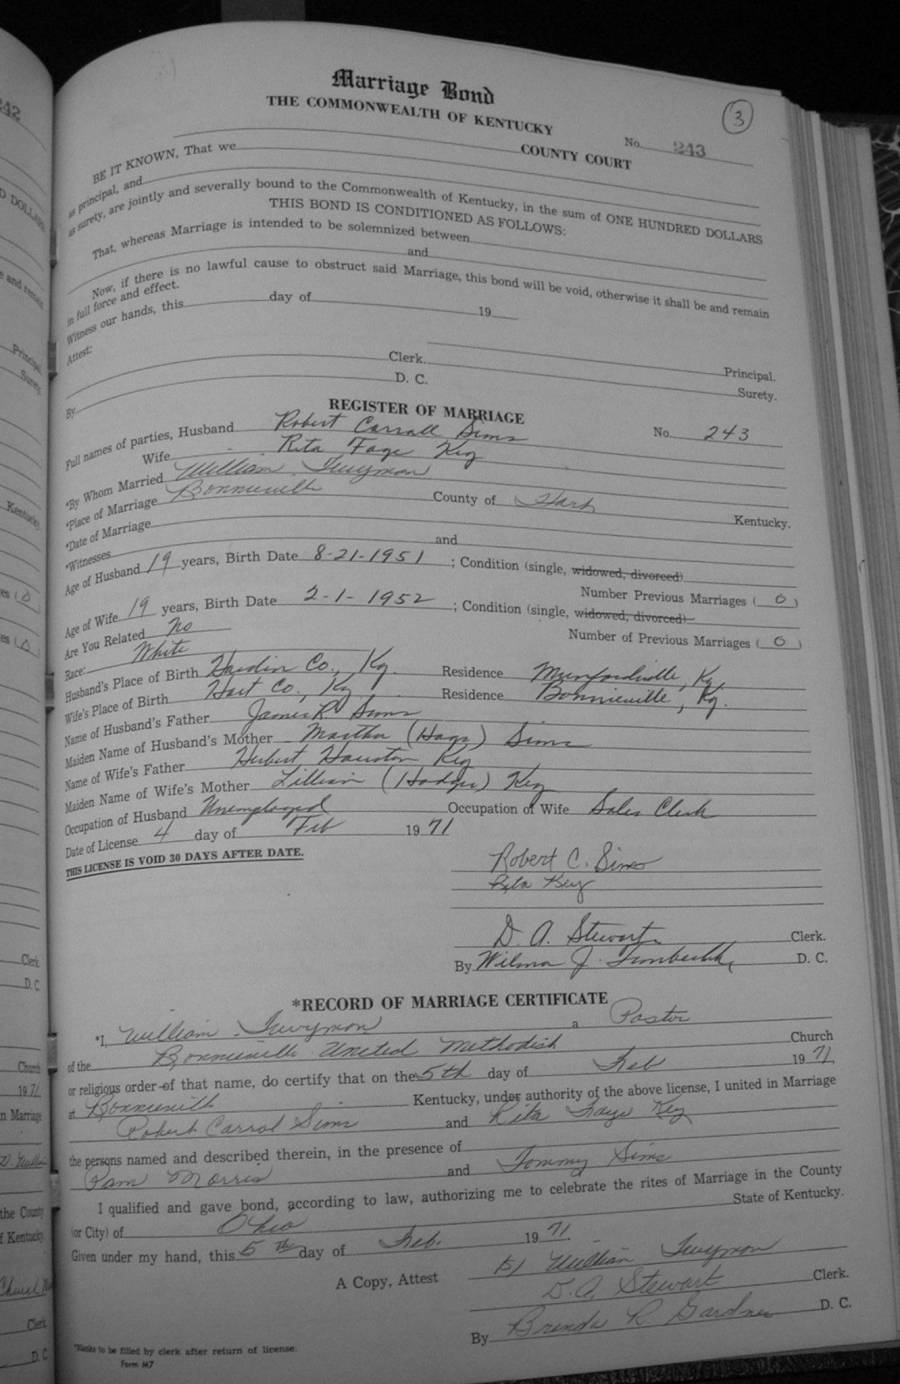 3
Marriage Bond
THE COMMONWEALTH OF KENTUCKY
No. 243
COUNTY COURT
BE IT KNOWN, That we
as principal, and
as surety, are jointly and severally bound to the Commonwealth of Kentucky, in the sum of ONE HUNDRED DOLLARS
THIS BOND IS CONDITIONED AS FOLLOWS:
That, whereas Marriage is intended to be solemnized between
and
Now, if there is no lawful cause to obstruct said Marriage, this bond will be void, otherwise it shall be and remain
in full force and effect.
Witness our hands, this day of 19
Attest:
Principal.
Clerk.
Surety.
By D. C.
REGISTER OF MARRIAGE
Full names of parties, Husband Robert Carroll Sims No. 243
Wife Rita Faye Key
*By Whom Married William Twyman
*Place of Marriage Bonnieville County of Hart Kentucky.
*Date of Marriage
*Witnesses and
Age of Husband 19 years, Birth Date 8-21-1951 ; Condition (single, widowed, divorced)
Number Previous Marriages ( 0 )
Age of Wife 19 years, Birth Date 2-1-1952 ; Condition (single, widowed, divorced)
Are You Related No Number of Previous Marriages ( 0 )
Race: White
Husband's Place of Birth Hardin Co., Ky. Residence Munfordville, Ky
Wife's Place of Birth Hart Co., Ky. Residence Bonnieville, Ky.
Name of Husband's Father James R Sims
Maiden Name of Husband's Mother Martha () Sims
Name of Wife's Father Herbert Houston Key
Maiden Name of Wife's Mother Lillian (Hodges) Key
Occupation of Husband Unemployed Occupation of Wife Sales Clerk
Date of License 4 day of Feb 1971
THIS LICENSE IS VOID 30 DAYS AFTER DATE.
Robert C. Sims
Rita Key
D. A. Stewart Clerk.
By Wilma J. D. C.
*RECORD OF MARRIAGE CERTIFICATE
*I, William Twyman a Pastor
of the Bonnieville United Methodist Church
or religious order of that name, do certify that on the 5th day of Feb 1971
at Bonnieville Kentucky, under authority of the above license, I united in Marriage
Robert Carrol Sims and Rita Faye Key
the persons named and described therein, in the presence of
Pam Morris and Tommy Sims
I qualified and gave bond, according to law, authorizing me to celebrate the rites of Marriage in the County
(or City) of Ohio State of Kentucky.
Given under my hand, this 5th day of Feb. 1971.
A Copy, Attest
William Twyman
D. A. Stewart Clerk.
By Brenda R Gardner D. C.
*Blanks to be filled by clerk after return of license.
Form M7